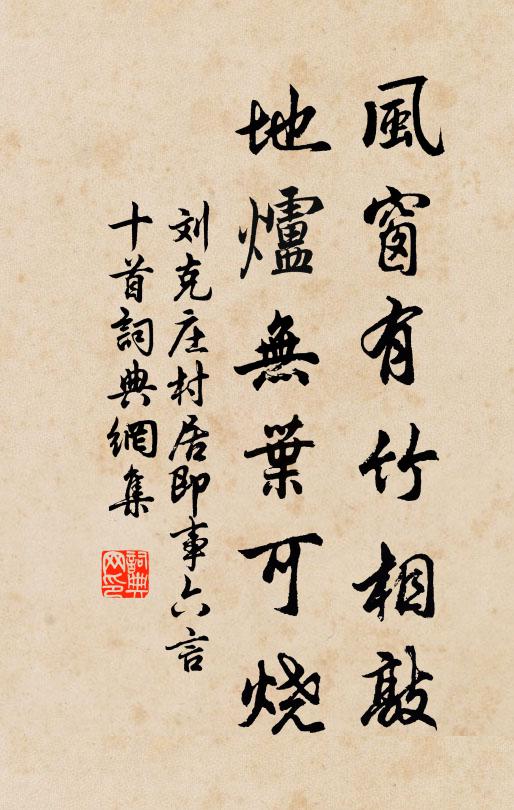 風窗有竹相敲
地爐無葉可烧
刘克庄村居即事六言
十首詞典網集
詞典
网印